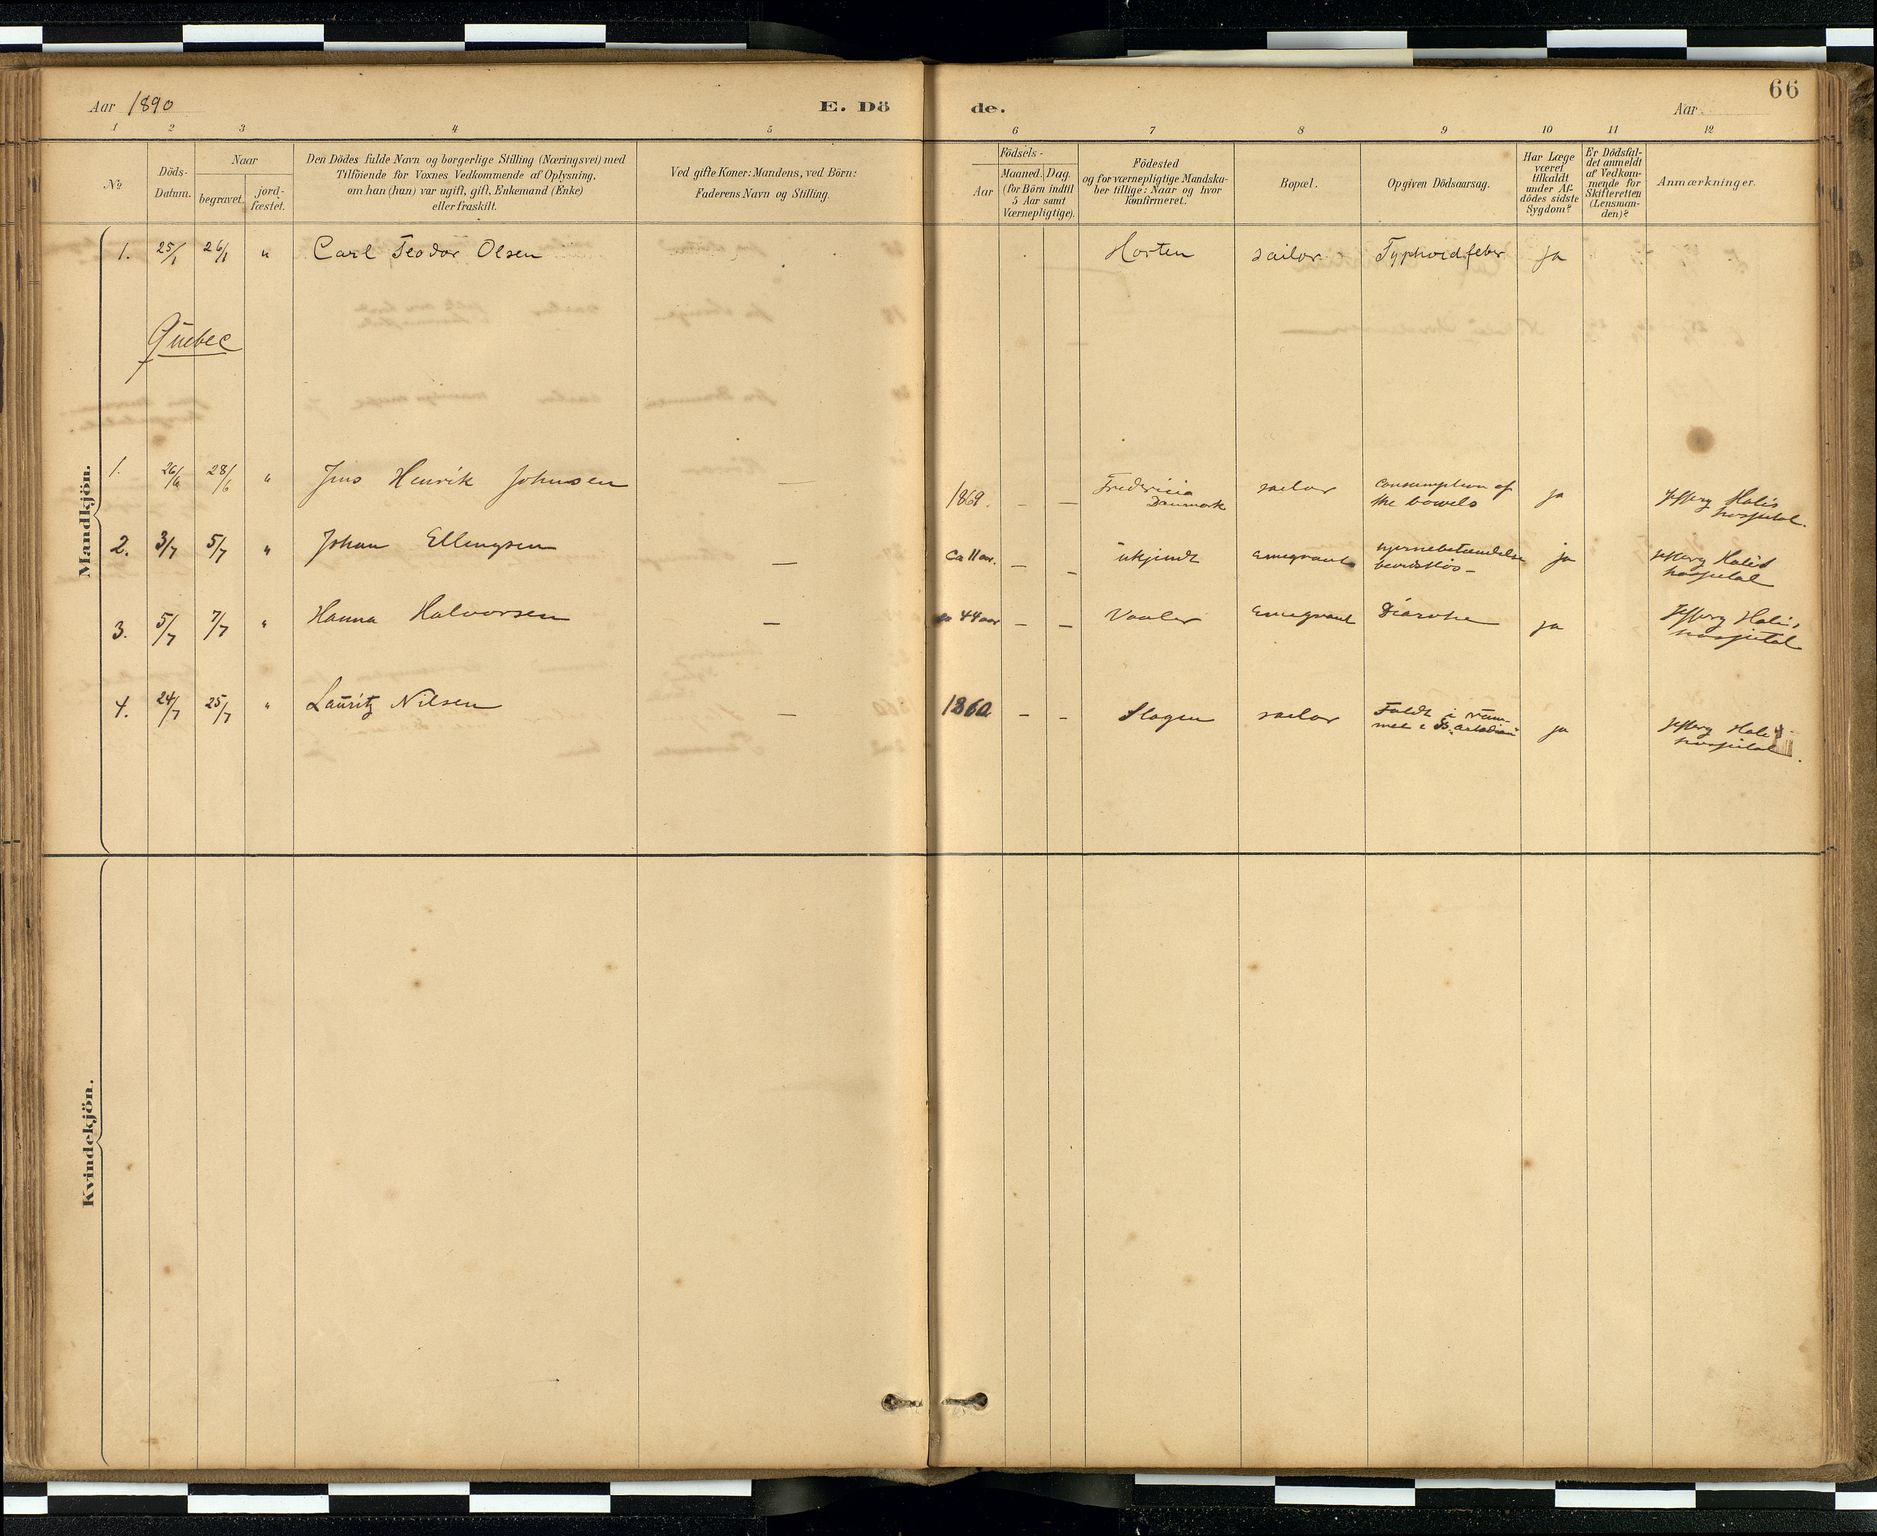 66
Aar 1890
E. Dö
de.
Aar
1 2 3 4 5 6 7 8 9 10 11 12
No
Döds-
Datum.
Naar
begravet.
jord-
fæstet.
Den Dödes fulde Navn og borgerlige Stilling (Næringsvei) med
Tilföiende for Voxnes Vedkommende af Oplysning,
om han (hun) var ugift, gift, Enkemand (Enke)
eller fraskilt.
Ved gifte Koner: Mandens, ved Börn:
Faderens Navn og Stilling.
Födsels-
Aar
Maaned. Dag.
(for Börn indtil
5 Aar samt
Værnepligtige).
Födested
og for værnepligtige Mandska-
ber tillige: Naar og hvor
konfirmeret.
Bopæl.
Opgiven Dödsaarsag.
Har Læge
været
tilkaldt
under Af-
dödes sidste
Sygdom?
Er Dödsfal-
det anmeldt
af Vedkom-
mende for
Skifteretten
(Lensman-
den)?
Anmærkninger.
Mandkjön.
1. 25/1 26/1 " Carl Teodor Olsen Horten sailor Typhoidfeber Ja
Quebec
1. 26/6 28/6 " Jens Henrik Johnsen — 1869. — — Fredericia
Danmark sailor Consumption of
the bowels ja Jeffery Hale's
hospital.
2. 3/7 5/7 " Johan Ellingsen — Ca 11 aar. — — ukjendt emegrant hjernebetændelse
bevidstløs — ja Jeffery Hale's
hospital
3. 5/7 7/7 " Hanna Halvorsen — 44 aar — — Vaaler Emegrant Diarohe ja Jeffery Hale's
hospital
4. 24/7 25/7 " Lauritz Nilsen — 1860 — — Slagen sailor Faldt i rum-
met i ja Jeffery Hale's
hospital.
Kvindekjön.